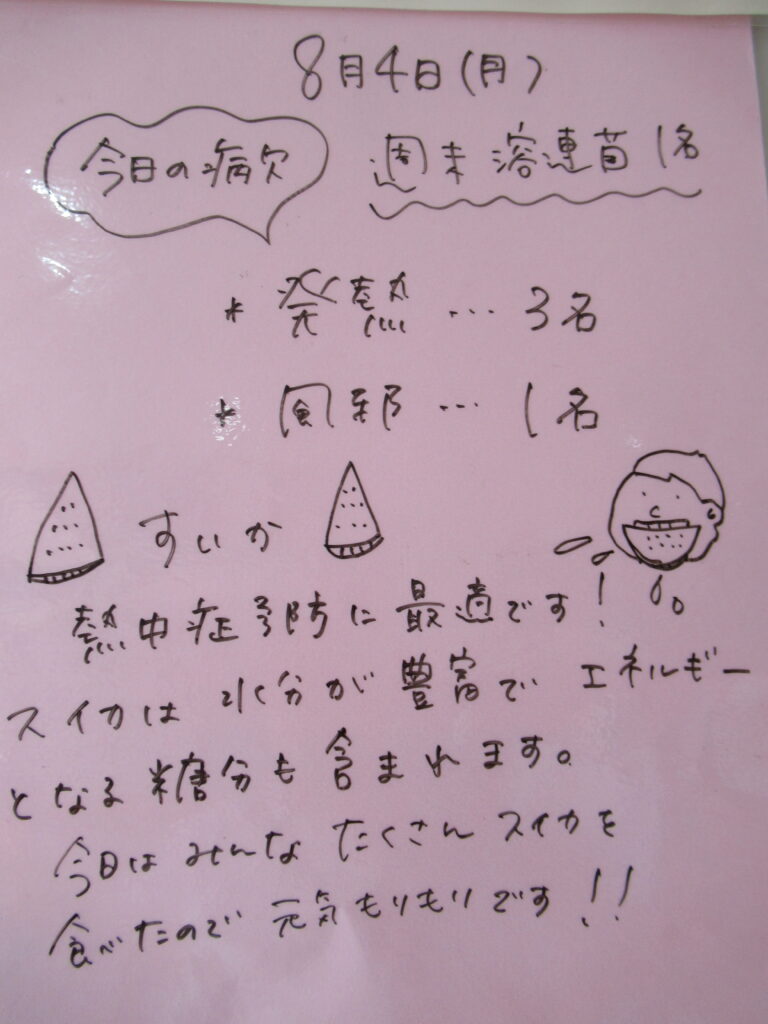 8月4日(月)
今日の病欠
週末 溶連菌 1名
* 発熱 … 3名
* 風邪 … 1名
すいか
熱中症予防に最適です!
スイカは 水分が豊富で エネルギー
となる糖分も含まれます。
今日は みんな たくさん スイカを
食べたので 元気もりもりです!!